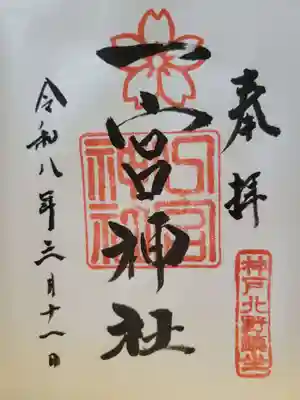 奉拝
神戸北野鎮座
一宮神社
令和八年三月十一日